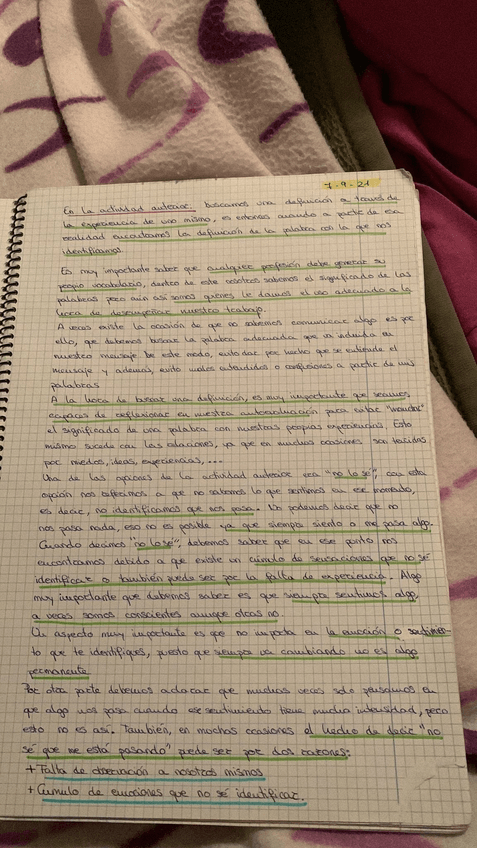 7-9-21
En la actividad anterior, buscamos una definición a través de
la experiencia de uno mismo, es entonces cuando a partir de esa
realidad encontramos la definición de la palabra con la que nos
identificamos.
Es muy importante saber que cualquier profesión debe generar su
propio vocabulario, dentro de este nosotros sabemos el significado de las
palabras pero aún así somos quienes le damos el uso adecuado a la
hora de desempeñar nuestro trabajo.
A veces existe la ocasión de que no sabemos comunicar algo es por
ello, que debemos buscar la palabra adecuada que se incluida en
nuestro mensaje De este modo, evito dar por hecho que se entiende el
mensaje y además, evito malos entendidos o confusiones a partir de mis
palabras
A la hora de buscar una definición, es muy importante que seamos
capaces de reflexionar en nuestra autoevaluación para evitar
el significado de una palabra con nuestras propias experiencias. Esto
mismo sucede con las relaciones, ya que en muchas ocasiones son teñidas
por miedos, ideas, experiencias, ...
Una de las opciones de la actividad anterior era "no lo sé", con esta
opción nos referimos a que no sabemos lo que sentimos en ese momento,
es decir, no identificamos que nos pasa. No podemos decir que no
nos pasa nada, eso no es posible ya que siempre siento o me pasa algo.
Cuando decimos "no lo sé", debemos saber que en ese punto nos
encontramos debido a que existe un cúmulo de sensaciones que no sé
identificar o también puede ser por la falta de experiencia. Algo
muy importante que debemos saber es que siempre sentimos algo,
a veces somos conscientes aunque otras no.
Un aspecto muy importante es que no importa en la emoción o sentimien-
to que te identifiques, puesto que siempre va cambiando no es algo
permanente
Por otra parte debemos aclarar que muchas veces solo pensamos en
que algo nos pasa cuando ese sentimiento tiene mucha intensidad, pero
esto no es así. También, en muchas ocasiones el hecho de decir "no
sé que me está pasando" puede ser por dos razones:
+ Falta de observación a nosotros mismos
+ Cumulo de emociones que no sé identificar.